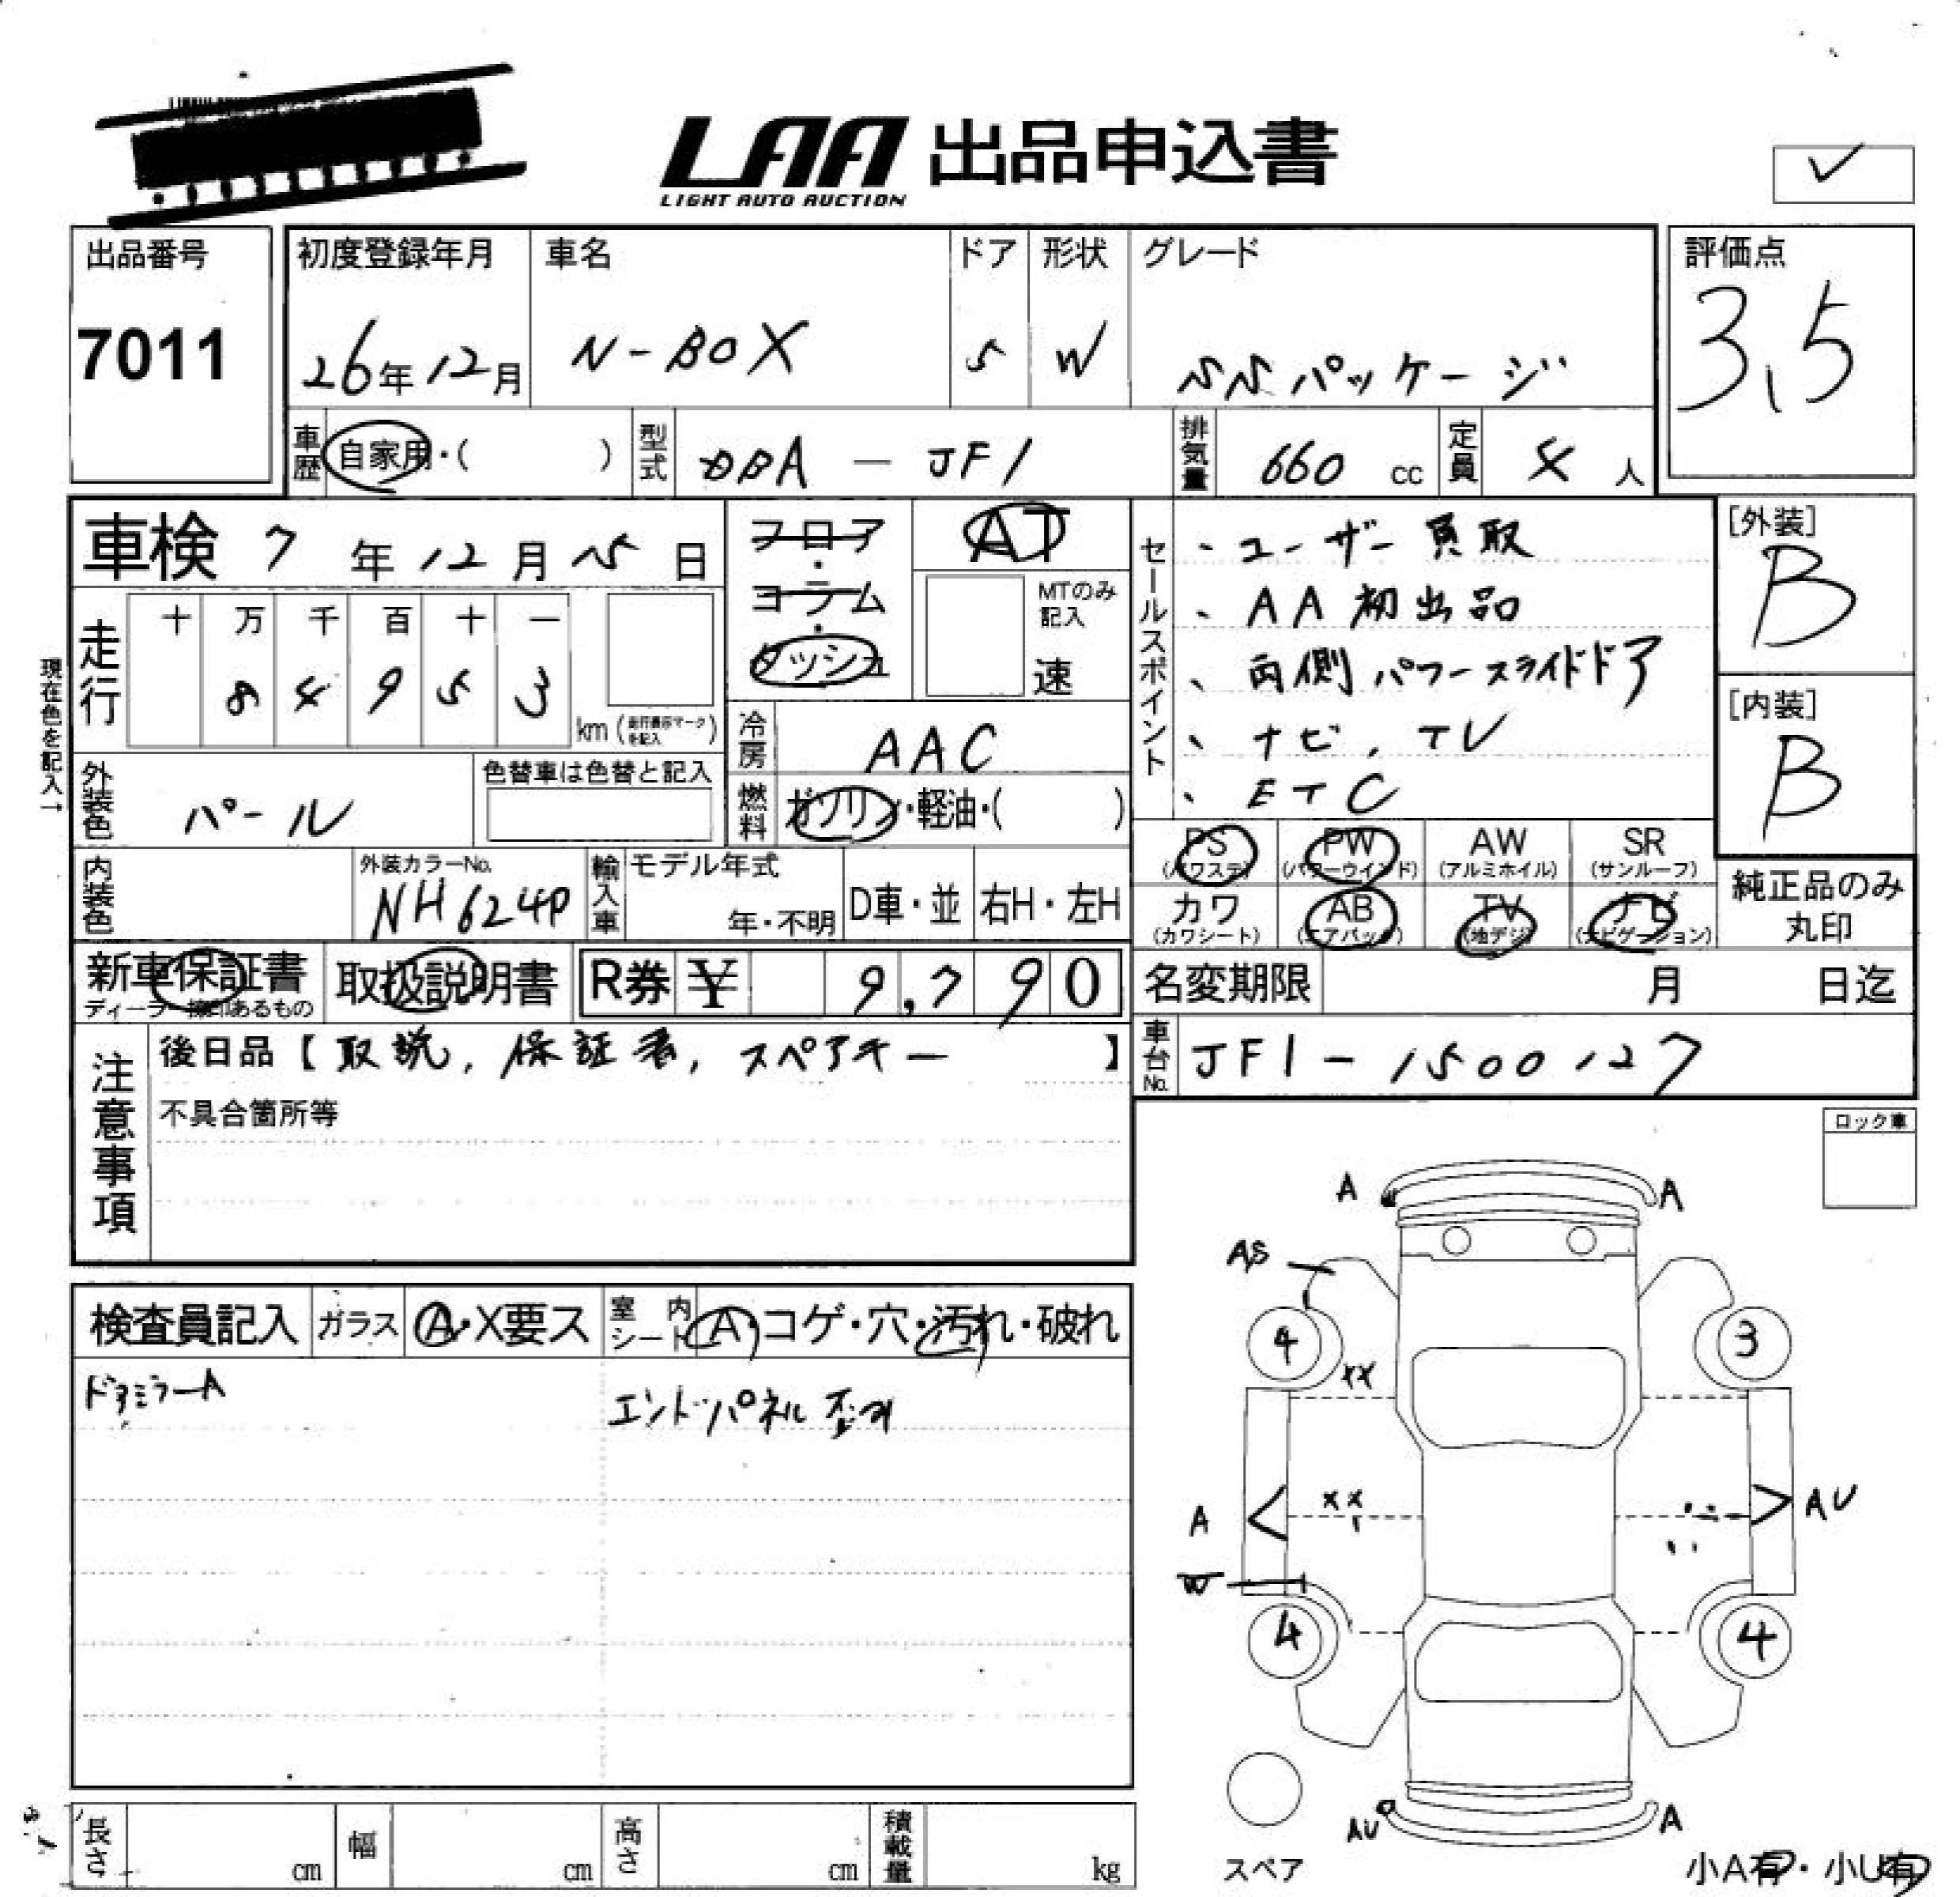 LAA 出品申込書
LIGHT AUTO AUCTION
✓
出品番号
7011
初度登録年月
26年12月
車名
N-BOX
ドア
5
形状
W
グレード
SSパッケージ
評価点
3.5
車歴
自家用・( )
型式
DBA-JF1
排気量
660 cc
定員
4 人
車検 7年12月15日
フロア・コラム・ダッシュ
AT
MTのみ記入
速
セールスポイント
、ユーザー買取
、AA初出品
、両側パワースライドドア
、ナビ、TV
、ETC
[外装]
B
[内装]
B
現在色を記入→
走行
十 万 千 百 十 一
8 4 9 5 3
km (走行表示マークを記入)
冷房
AAC
燃料
ガソリン・軽油・( )
外装色
パール
色替車は色替と記入
PS (パワステ)
PW (パワーウインド)
AW (アルミホイル)
SR (サンルーフ)
カワ (カワシート)
AB (エアバック)
TV (地デジ)
ナビ (ナビゲーション)
純正品のみ丸印
内装色
外装カラーNo.
NH624P
輸入車
モデル年式
年・不明
D車・並
右H・左H
新車保証書
ディーラー捺印あるもの
取扱説明書
R券 ¥ 9,790
名変期限 月 日迄
注意事項
後日品【取説, 保証書, スペアキー】
不具合箇所等
車台No.
JF1-1500127
ロック車
検査員記入
ガラス
A・X要ス
室内シート
A・コゲ・穴・汚れ・破れ
ドアミラーA
エンドパネル歪み
A
A
AS
4
3
XX
XX
A
AU
W
4
4
AU
A
スペア
長さ cm
幅 cm
高さ cm
積載量 kg
小A有・小U有